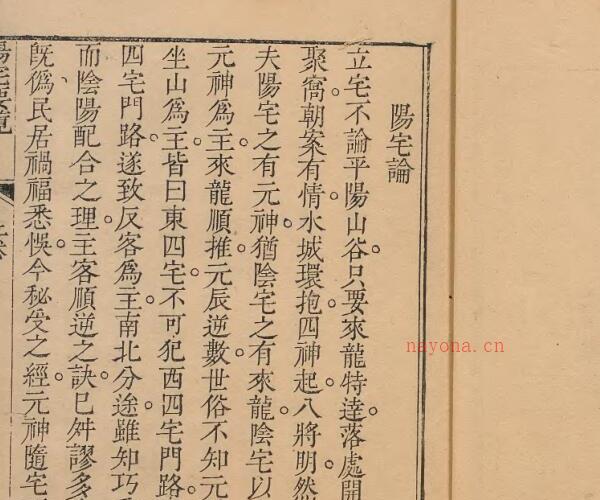 陽宅論
立宅不論平陽山谷。只要來龍特達。落處開
聚窩。朝案有情。水城環抱。四神起。八將明。然
夫陽宅之有元神。猶陰宅之有來龍。陰宅以
元神爲主。來龍順推。元辰逆數。世俗不知元
坐山爲主。皆曰東四宅不可犯西四宅門路。
四宅門路。遂致反客爲主。南北分途。雖知巧
而陰陽配合之理。主客順逆之訣。已舛謬多
旣僞。民居禍福悉悞。今秘受之經。元神隨宅
陽宅要覽
nayona.cn